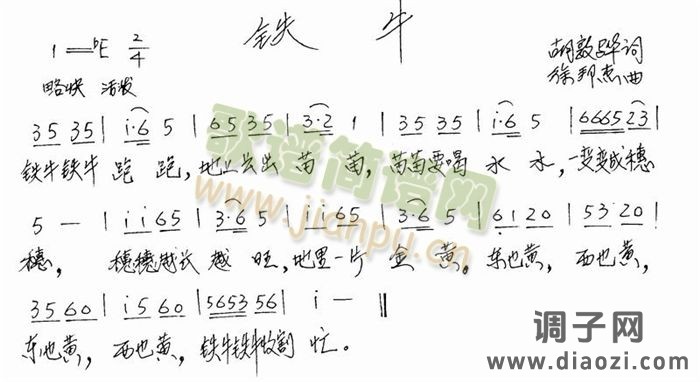 铁 牛
1=♭E 2/4
胡敦骅词
徐邦杰曲
略快 活泼
35 35 | i·6 5 | 65 35 | 3·2 1 | 35 35 | i·6 5 | 6665 23 |
铁牛铁牛 跑 跑, 地上长出 苗 苗, 苗苗要喝 水 水, 一变变成穗
5 — | i i 65 | 3·6 5 | i i 65 | 3·6 5 | 6i 20 | 53 20 |
穗, 穗穗越长 越 旺, 地里一片 金 黄。东也黄, 西也黄,
35 60 | i5 60 | 5653 56 | i — ‖
东也黄, 西也黄, 铁牛铁牛收割 忙。
歌谱简谱网
www.jianpu.cn
调子网
www.diaozi.com